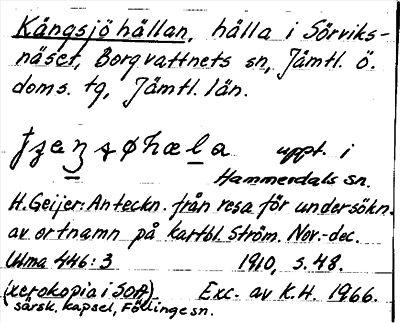 Kångsjöhällan, hälla i Sörviks-
näset, Borgvattnets sn, Jämtl. ö.
doms. tg, Jämtl. län.
uppt. i
Hammerdals sn.
H. Geijer: Anteckn. från resa för undersökn.
av ortnamn på kartbl. Ström. Nov.-dec.
Ulma 446:3 1910, s. 48.
(xerokopia i SOA) Exc. av K.H. 1966.
särsk. kapsel, Föllinge sn.